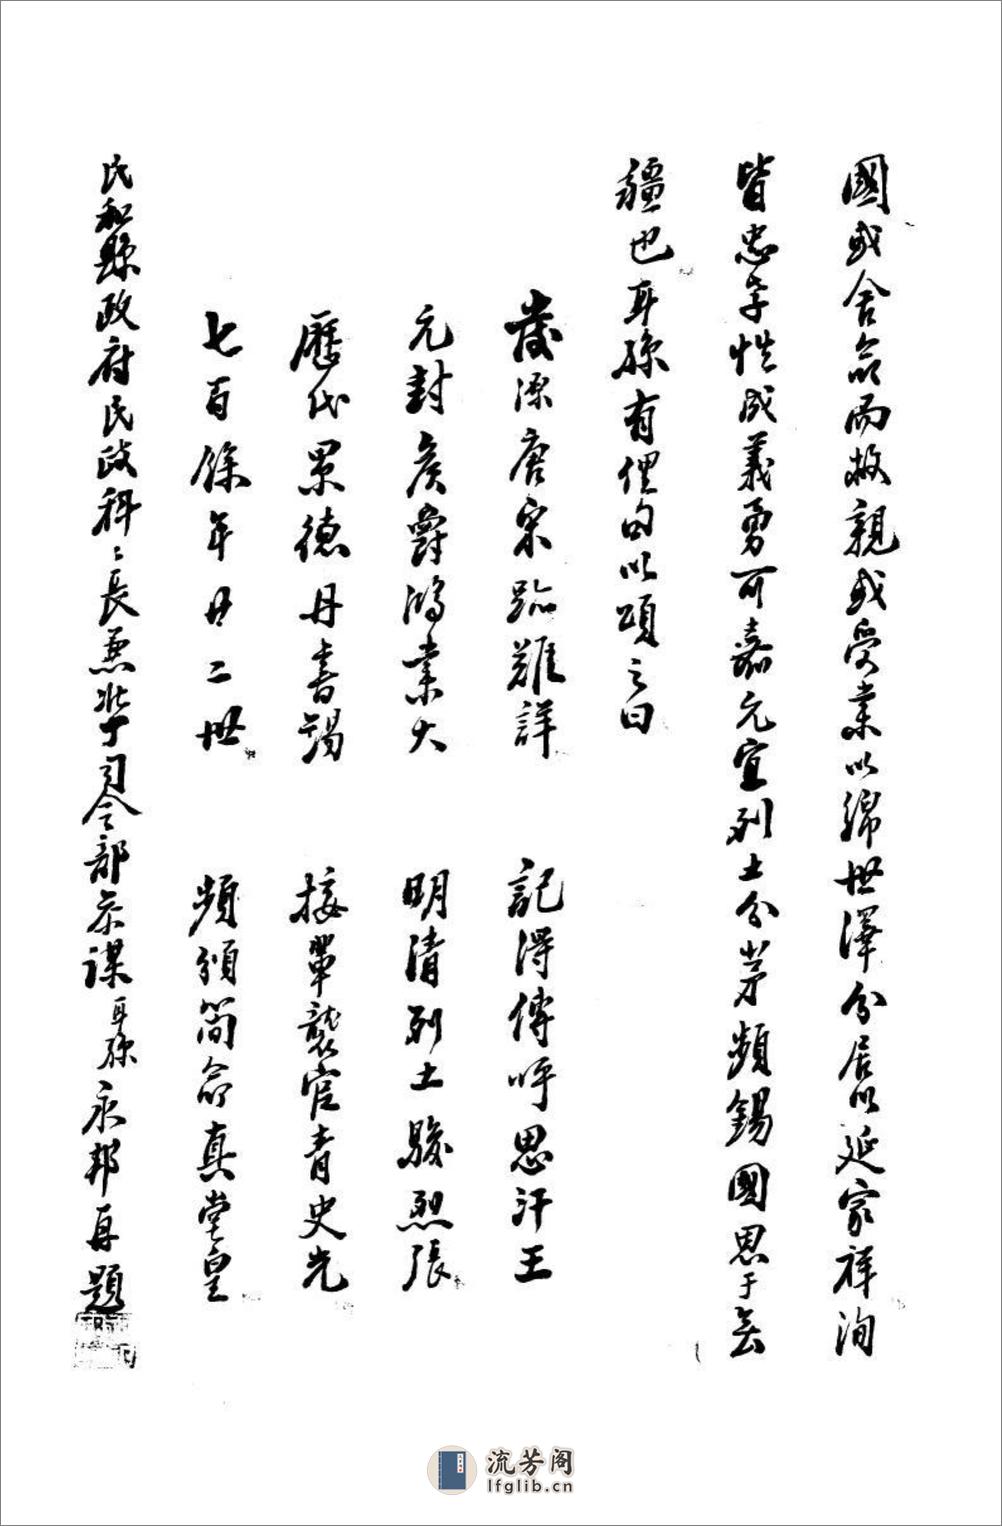 國或舍命而救親或受業以綿世澤分居以延家祥洵
皆忠孝性成義勇可嘉元宜列土分茅頻錫國恩于無
疆也耳孫有俚句以頌之曰
發源唐宋蹟難詳 記得傳呼恩汗王
元封侯爵鴻業大 明清列土駿烈張
歷代累德丹書錫 接輩襲官青史光
七百餘年廿二世 頻頒簡命真堂皇
民和縣政府民政科科長兼 司令部參謀耳孫永邦再題
流芳阁
lfglib.cn